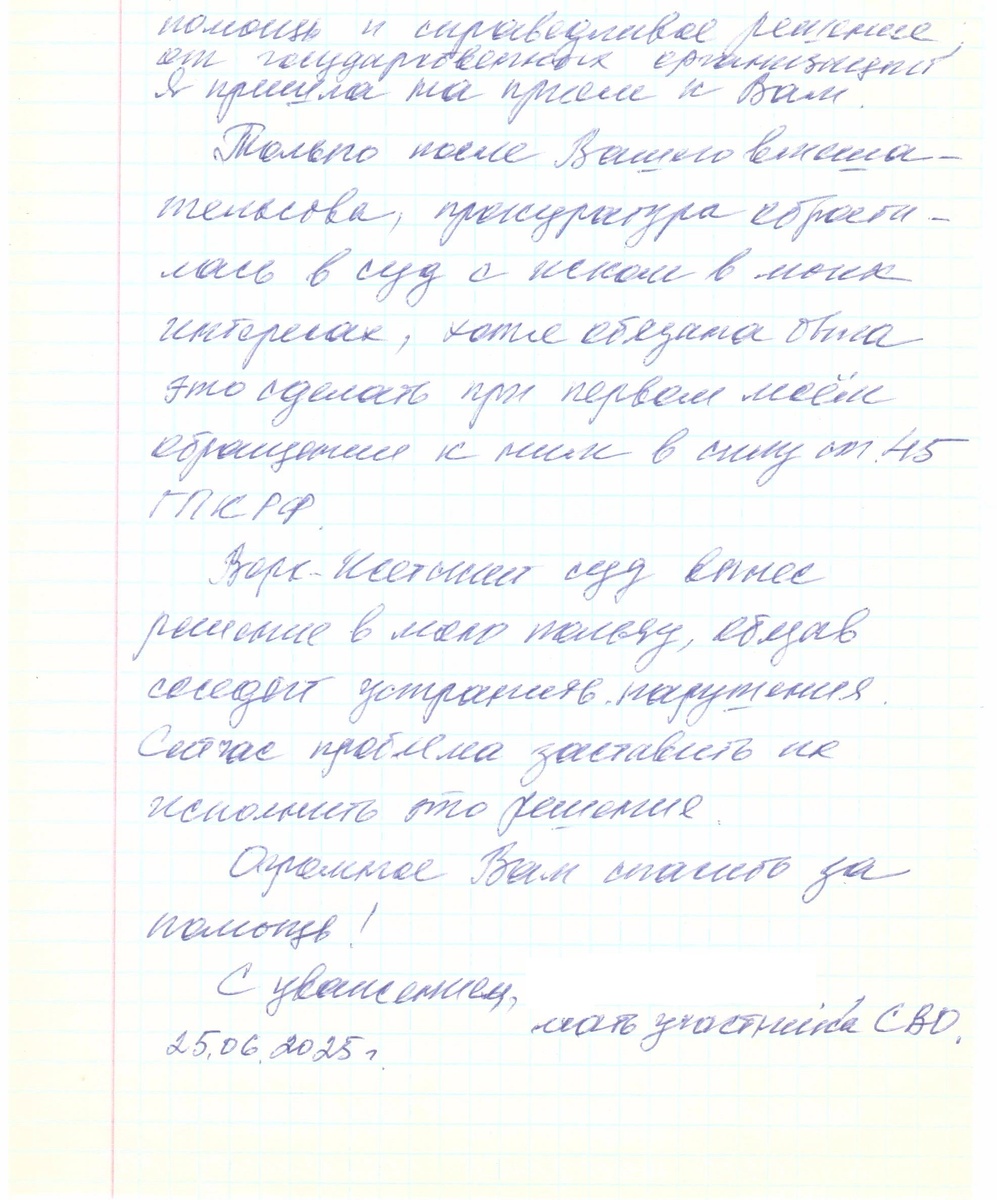 помощь и справедливое решение,
от государственных организаций
Я пришла на прием к Вам.
Только после Вашего вмеша-
тельсова, прокуратура обрати-
лась в суд с иском в моих
интересах, хотя обязана была
это сделать при первом моём
обращении к ним в силу ст. 45
ГПК РФ.
Верх-Исетский суд вынес
решение в мою пользу, обязав
соседей устранить нарушения.
Сейчас проблема заставить их
исполнить это решение.
Огромное Вам спасибо за
помощь!
С уважением,
мать участника СВО.
25.06.2025г.